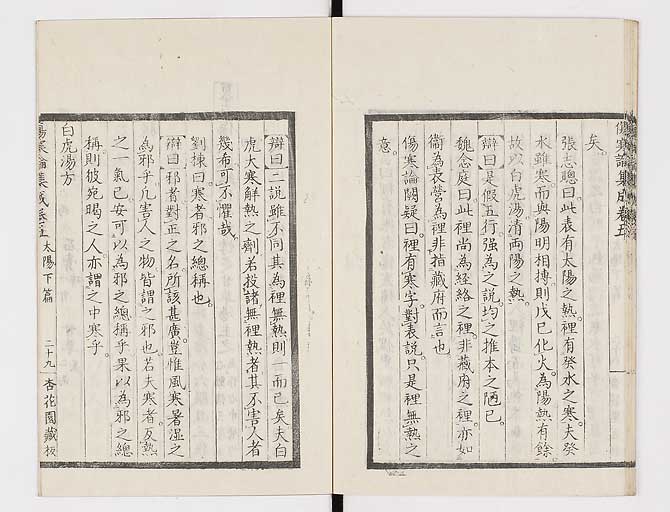 傷寒論集成卷五
矣。
張志聰曰。此表有太陽之熱。裡有癸水之寒。夫癸
水雖寒。而與陽明相摶。則戊己化火。為陽熱有餘。
故以白虎湯清兩陽之熱。
辯曰。是假五行。強為之說。均之推本之陋已。
魏念庭曰。此裡尚為經絡之裡。非藏府之裡。亦如
衞為表。營為裡。非指藏府而言也
傷寒論闕疑曰。裡有寒字。對表說。只是裡無熱之
意。
辯曰。二說雖不同。其為裡無熱則一而已矣。夫白
虎大寒解熱之劑。若投諸無裡熱者。其不害人者
幾希。可不懼哉。
劉棟曰。寒者邪之總稱也。
辯曰。邪者對正之名。所該甚廣。豈惟風寒暑湿之
為邪乎。凡害人之物。皆謂之邪也。若夫寒者。反熱
之一氣已。安可以為邪之總稱乎。果以為邪之總
稱。則彼宛暍之人。亦謂之中寒乎。
白虎湯方
傷寒論集成卷五 太陽下篇 二十九 杏花園藏板